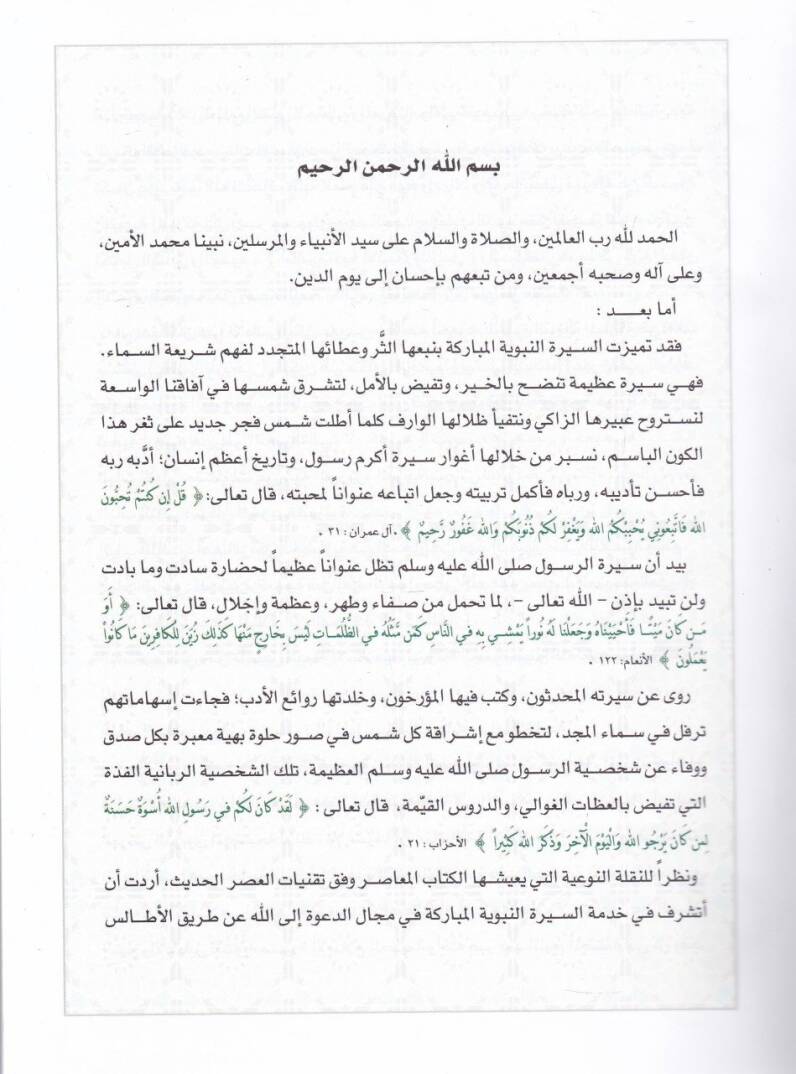 بسم الله الرحمن الرحيم
الحمد لله رب العالمين، والصلاة والسلام على سيد الأنبياء والمرسلين، نبينا محمد الأمين،
وعلى آله وصحبه أجمعين، ومن تبعهم بإحسان إلى يوم الدين.
أما بعـــد :
فقد تميزت السيرة النبوية المباركة بنبعها الثَّر وعطائها المتجدد لفهم شريعة السماء.
فهي سيرة عظيمة تنضح بالخير، وتفيض بالأمل، لتشرق شمسها في آفاقنا الواسعة
لنستروح عبيرها الزاكي ونتفيأ ظلالها الوارف كلما أطلت شمس فجر جديد على ثغر هذا
الكون الباسم، نسبر من خلالها أغوار سيرة أكرم رسول، وتاريخ أعظم إنسان؛ أدَّبه ربه
فأحسن تأديبه، ورباه فأكمل تربيته وجعل اتباعه عنواناً لمحبته، قال تعالى: ﴿ قُلْ إِن كُنتُمْ تُحِبُّونَ
الله فَاتَّبِعُونِي يُحْبِبْكُمُ الله وَيَغْفِرْ لَكُمْ ذُنُوبَكُمْ وَالله غَفُورٌ رَّحِيمٌ ﴾ .آل عمران: ٣١ .
بيد أن سيرة الرسول صلى الله عليه وسلم تظل عنواناً عظيماً لحضارة سادت وما بادت
ولن تبيد بإذن – الله تعالى –، لما تحمل من صفاء وطهر، وعظمة وإجلال، قال تعالى: ﴿ أَوَ
مَن كَانَ مَيْتًا فَأَحْيَيْنَاهُ وَجَعَلْنَا لَهُ نُوراً يَمْشِي بِهِ فِي النَّاسِ كَمَن مَّثَلُهُ فِي الظُّلُمَاتِ لَيْسَ بِخَارِجٍ مِّنْهَا كَذَلِكَ زُيِّنَ لِلْكَافِرِينَ مَا كَانُواْ
يَعْمَلُونَ ﴾ الأنعام: ١٢٢ .
روى عن سيرته المحدثون، وكتب فيها المؤرخون، وخلدتها روائع الأدب؛ فجاءت إسهاماتهم
ترفل في سماء المجد، لتخطو مع إشراقة كل شمس في صور حلوة بهية معبرة بكل صدق
ووفاء عن شخصية الرسول صلى الله عليه وسلم العظيمة، تلك الشخصية الربانية الفذة
التي تفيض بالعظات الغوالي، والدروس القيّمة، قال تعالى : ﴿ لَقَدْ كَانَ لَكُمْ فِي رَسُولِ الله أُسْوَةٌ حَسَنَةٌ
لِمَن كَانَ يَرْجُو الله وَالْيَوْمَ الْآخِرَ وَذَكَرَ الله كَثِيراً ﴾ الأحزاب: ٢١ .
ونظراً للنقلة النوعية التي يعيشها الكتاب المعاصر وفق تقنيات العصر الحديث، أردت أن
أتشرف في خدمة السيرة النبوية المباركة في مجال الدعوة إلى الله عن طريق الأطالس